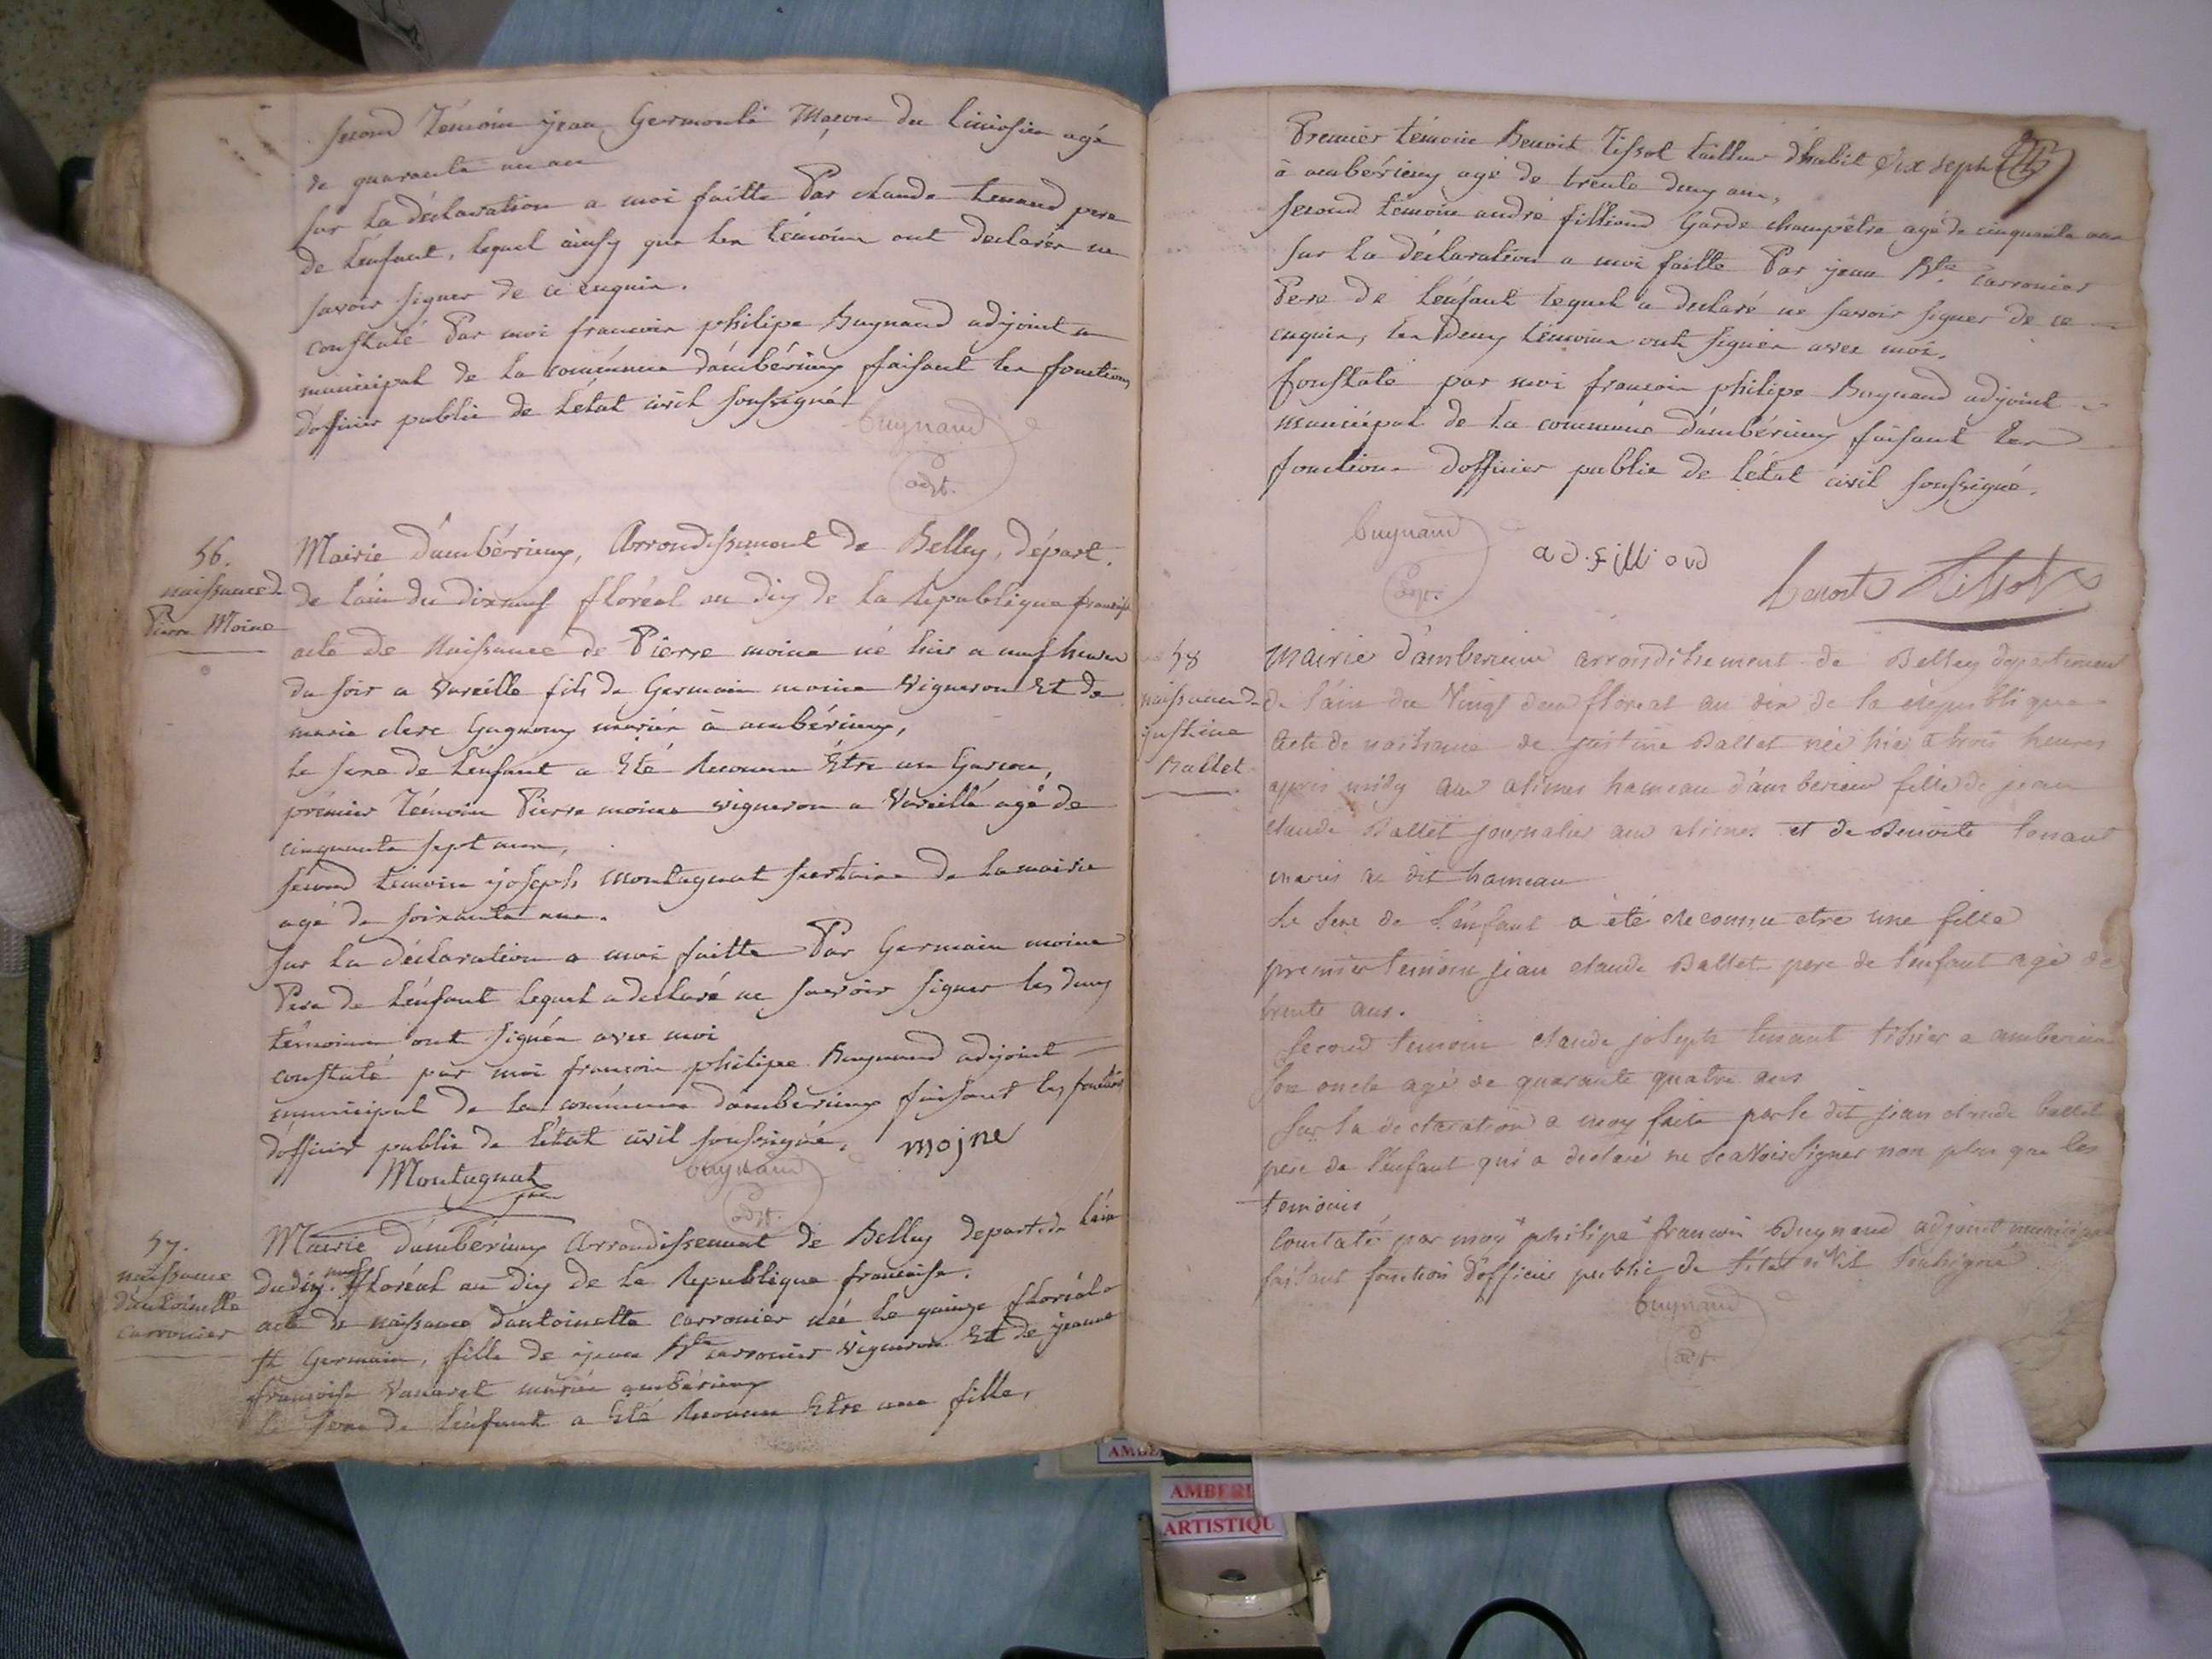 second Témoin jean Germouli Maçon du limosin agé
de quarante un an
sur la déclaration a moi faitte Par claude tenand pere
de L'enfant, lequel àinsy que les témoins ont declarés ne
savoir signer de ce enquis.
constaté Par moi francois philipe Buynand adjoint
municipal de la commune d'ambérieux faisant les fonctions
d'officier public de L'état civil soussigné
buynand
adjt.
56.
naissance de
Pierre Moine
Mairie d'ambérieux, Arrondissement de Belley, départ.
de l'ain du dixneuf floréal an dix de la Republique française
acte de Naissance de Pierre moine né hier a neuf heures
du soir a Vareille fils de Germain moine Vigneron Et de
marie clere Gagneux mariés à ambérieux,
Le sexe de L'enfant a Eté Reconnu Etre un Garcon,
prémier Témoin Pierre moine vigneron a Vareille agé de
cinquante sept ans,
second témoin joseph Montagnat secrtaire de la mairie
agé de soixante ans.
sur la déclaration a moi faitte Par Germain moine
Pere de L'enfant lequel a declaré ne savoir signer les deux
témoins ont signés avec moi
constaté par moi francois philipe Buynand adjoint
municipal de la commune d'amberieux faisant les fonctions
d'officier public de l'état civil soussigné. mojne
Montagnat
buynand
adjt.
57.
naissance
d'antoinette
carronier
Mairie d'ambérieux Arrondissement de Belley depart. de L'ain
du dix neuf floréal an dix de la Republique francaise.
acte de naissance d'antoinette carronier née le quinze floréal a
st Germain, fille de jean Bte carronier vigneron Et de jeanne
francoise Vanaret mariés ambérieux
Le sexe de L'enfant a Eté Reconnu Etre une fille,
Premier témoin Benoit Tissot tailleur d'habit dix sept
à ambérieux agé de trente deux ans,
second témoin andré filliond Garde champêtre agé de cinquante ans
sur la déclaration a moi faitte Par jean Bte. carronier
Pere de L'enfant lequel a declaré ne savoir signer de ce
enquis, les deux témoins ont signés avec moi.
Constaté par moi francois philipe Buynand adjoint
municipal de la commune d'ambérieux faisant les
fonctions d'officier public de l'état civil soussigné.
buynand
adjt.
ad. fillioud
benoit Tissot
58
naissance de
justine
Ballet
Mairie d'amberieux arrondissement de Belley département
de l'ain du Vingt deux floréal an dix de la république
acte de naissance de justine Ballet née hier a trois heures
apres midy aux alimes hameau d'amberieux fille de jean
claude Ballet journalier aux alimes et de Benoite tenant
mariés au dit hameau
Le sexe de l'enfant a été Reconnu etre une fille
premier temoin jean claude Ballet pere de l'enfant agé de
trente ans.
second temoin claude joseph tenant tissier a amberieux
son oncle agé de quarante quatre ans
sur la declaration a moy faite par le dit jean claude ballet
pere de l'enfant qui a déclaré ne scaVoir signer non plus que les
temoins
Constaté par moy philipe francois Buynand adjoint municipal
faisant fonction d'officier public de l'etat ciVil soussigné
buynand
adjt.
AMBERI
ARTISTIQU